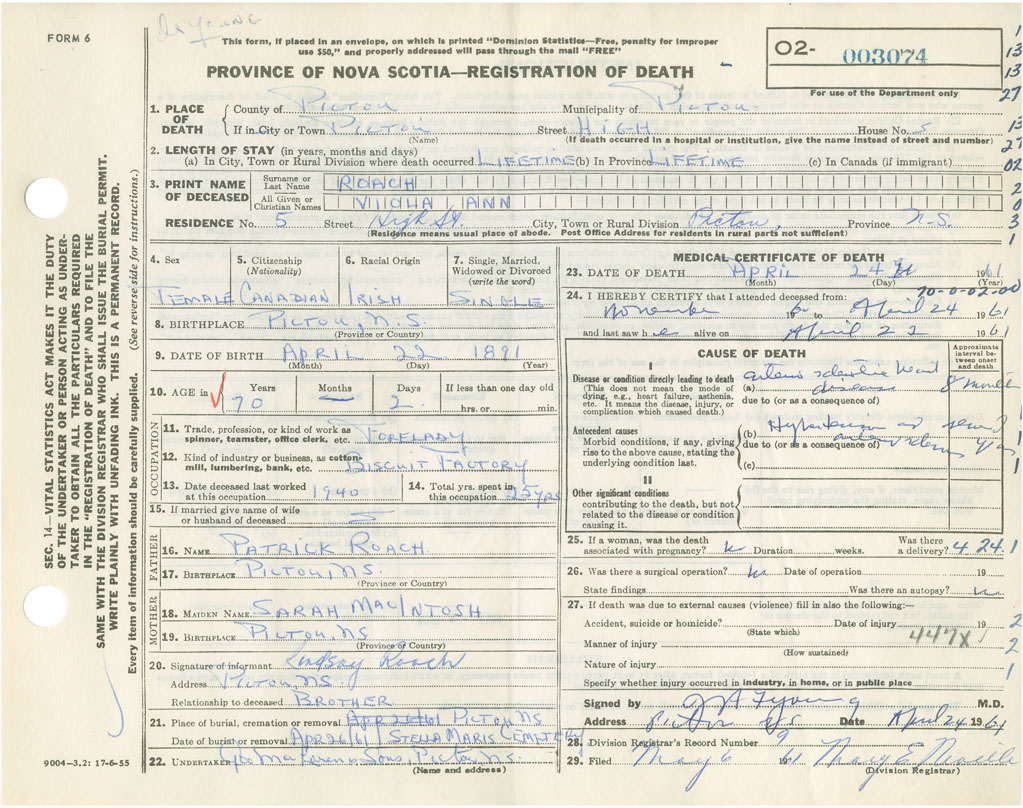 FORM 6
De Young
This form, if placed in an envelope, on which is printed "Dominion Statistics—Free, penalty for improper
use $50," and properly addressed will pass through the mail "FREE"
PROVINCE OF NOVA SCOTIA—REGISTRATION OF DEATH
O2- 003074
For use of the Department only
1. PLACE OF DEATH County of PICTOU Municipality of PICTOU
If in City or Town PICTOU Street HIGH House No. 5
(Name) (If death occurred in a hospital or institution, give the name instead of street and number)
2. LENGTH OF STAY (in years, months and days)
(a) In City, Town or Rural Division where death occurred LIFETIME (b) In Province LIFETIME (c) In Canada (if immigrant)
3. PRINT NAME OF DECEASED Surname or Last Name ROACH
All Given or Christian Names VIOLA ANN
RESIDENCE No. 5 Street High St. City, Town or Rural Division Pictou, Province N-S.
(Residence means usual place of abode. Post Office Address for residents in rural parts not sufficient)
4. Sex 5. Citizenship (Nationality) 6. Racial Origin 7. Single, Married, Widowed or Divorced (write the word)
FEMALE CANADIAN IRISH SINGLE
8. BIRTHPLACE PICTOU, N.S.
(Province or Country)
9. DATE OF BIRTH APRIL 22 1891
(Month) (Day) (Year)
10. AGE in Years Months Days If less than one day old
70 — 2 hrs. or min.
OCCUPATION
11. Trade, profession, or kind of work as spinner, teamster, office clerk, etc. FORELADY
12. Kind of industry or business, as cotton-mill, lumbering, bank, etc. BISCUIT FACTORY
13. Date deceased last worked at this occupation 1940 14. Total yrs. spent in this occupation 25 yrs
15. If married give name of wife or husband of deceased
FATHER
16. NAME PATRICK ROACH
17. BIRTHPLACE PICTOU, NS.
(Province or Country)
MOTHER
18. MAIDEN NAME SARAH MACINTOSH
19. BIRTHPLACE PICTOU, NS
(Province or Country)
20. Signature of informant Lindsay Roach
Address PICTOU, NS.
Relationship to deceased BROTHER
21. Place of burial, cremation or removal APR 26/61 PICTOU NS
Date of burial or removal APR 26/61 STELLA MARIS CEMETERY
22. UNDERTAKER MacLaren & Sons, Pictou, NS.
(Name and address)
MEDICAL CERTIFICATE OF DEATH
23. DATE OF DEATH APRIL 24 1961
(Month) (Day) (Year)
70-0-02-00
24. I HEREBY CERTIFY that I attended deceased from:
November 19 to April 24 1961
and last saw h e alive on April 22 1961
CAUSE OF DEATH
Approximate interval between onset and death
I
Disease or condition directly leading to death (a) disease 8 months
(This does not mean the mode of dying, e.g., heart failure, asthenia, etc. It means the disease, injury, or complication which caused death.)
due to (or as a consequence of)
Antecedent causes (b) Hypertension
Morbid conditions, if any, giving rise to the above cause, stating the underlying condition last.
due to (or as a consequence of)
(c)
II
Other significant conditions
contributing to the death, but not related to the disease or condition causing it.
25. If a woman, was the death associated with pregnancy? Duration weeks. Was there a delivery? 4.24.1
26. Was there a surgical operation? Date of operation 19
State findings Was there an autopsy?
27. If death was due to external causes (violence) fill in also the following:—
Accident, suicide or homicide? Date of injury 19
(State which)
447X
Manner of injury
(How sustained)
Nature of injury
Specify whether injury occurred in industry, in home, or in public place
Signed by M.D.
Address Pictou NS Date April 24 1961
28. Division Registrar's Record Number 9
29. Filed May 6 1961 Mary E.
(Division Registrar)
SEC. 14—VITAL STATISTICS ACT MAKES IT THE DUTY
OF THE UNDERTAKER OR PERSON ACTING AS UNDER-
TAKER TO OBTAIN ALL THE PARTICULARS REQUIRED
IN THE "REGISTRATION OF DEATH" AND TO FILE THE
SAME WITH THE DIVISION REGISTRAR WHO SHALL ISSUE THE BURIAL PERMIT.
WRITE PLAINLY WITH UNFADING INK. THIS IS A PERMANENT RECORD.
Every item of information should be carefully supplied. (See reverse side for instructions.)
9004—3.2: 17-6-55
1
13
13
27
13
27
02
2
0
3
1
1
1
1
1
2
2
1